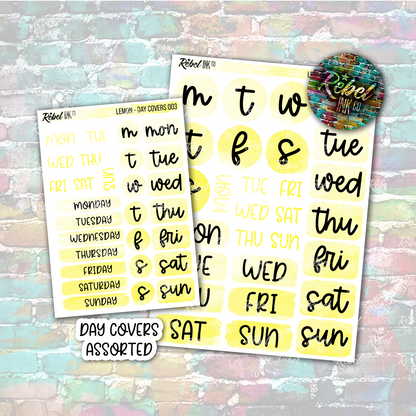 Rebel INK CO
LEMON - DAY COVERS 003
MON TUE m mon
WED THU t tue
FRI SAT SUN w wed
MONDAY
TUESDAY t thu
WEDNESDAY f fri
THURSDAY
FRIDAY s sat
SATURDAY
SUNDAY s sun
DAY COVERS
ASSORTED
Rebel INK CO
m t w
t f s tue
MON TUE FRI wed
WED SAT thu
THU SUN
WED fri
FRI sat
SAT SUN sun
Rebel
INK CO